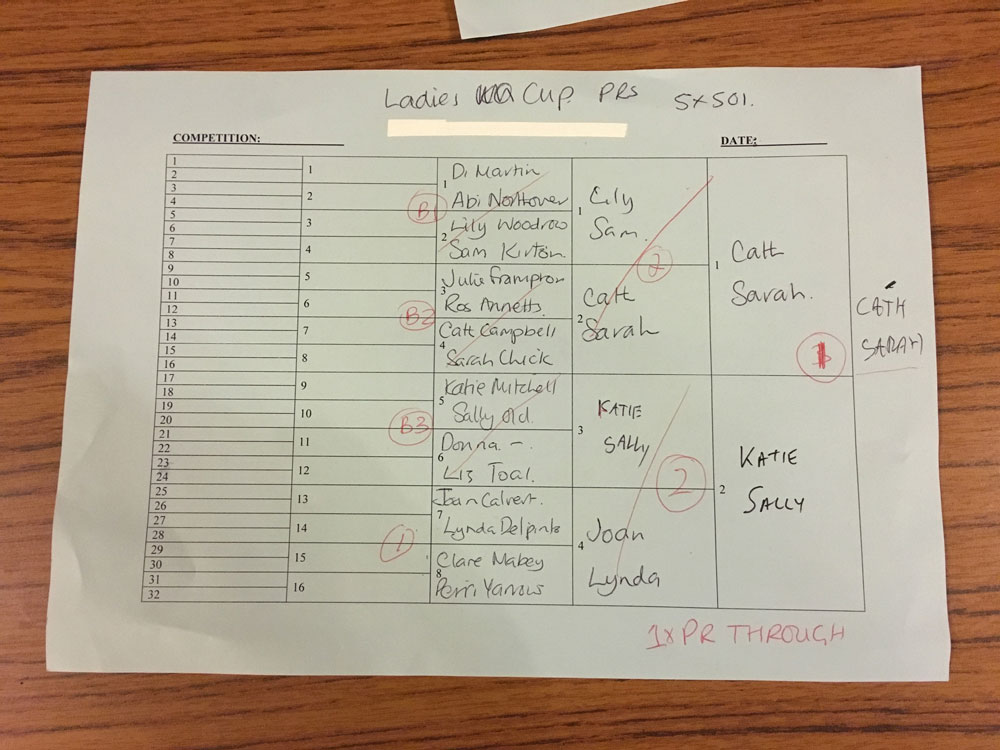 Ladies Cup PRS 5x501.
COMPETITION:
DATE:
1
2
3
4
5
6
7
8
9
10
11
12
13
14
15
16
17
18
19
20
21
22
23
24
25
26
27
28
29
30
31
32
1
2
3
4
5
6
7
8
9
10
11
12
13
14
15
16
B1
B2
B3
1
1
Di Martin
Abi Northover
2
Lily Woodrow
Sam Kirton
3
Julie Frampton
Ros Annetts
4
Cath Campbell
Sarah Chick
5
Katie Mitchell
Sally Old.
6
Donna -.
Liz Toal.
7
Joan Calvert.
Lynda Delpinto
8
Clare Mabey
1
Lily
Sam.
2
2
Cath
Sarah
3
KATIE
SALLY
2
4
Joan
Lynda
1
Cath
Sarah.
1
2
KATIE
SALLY
CATH
SARAH
1x PR THROUGH